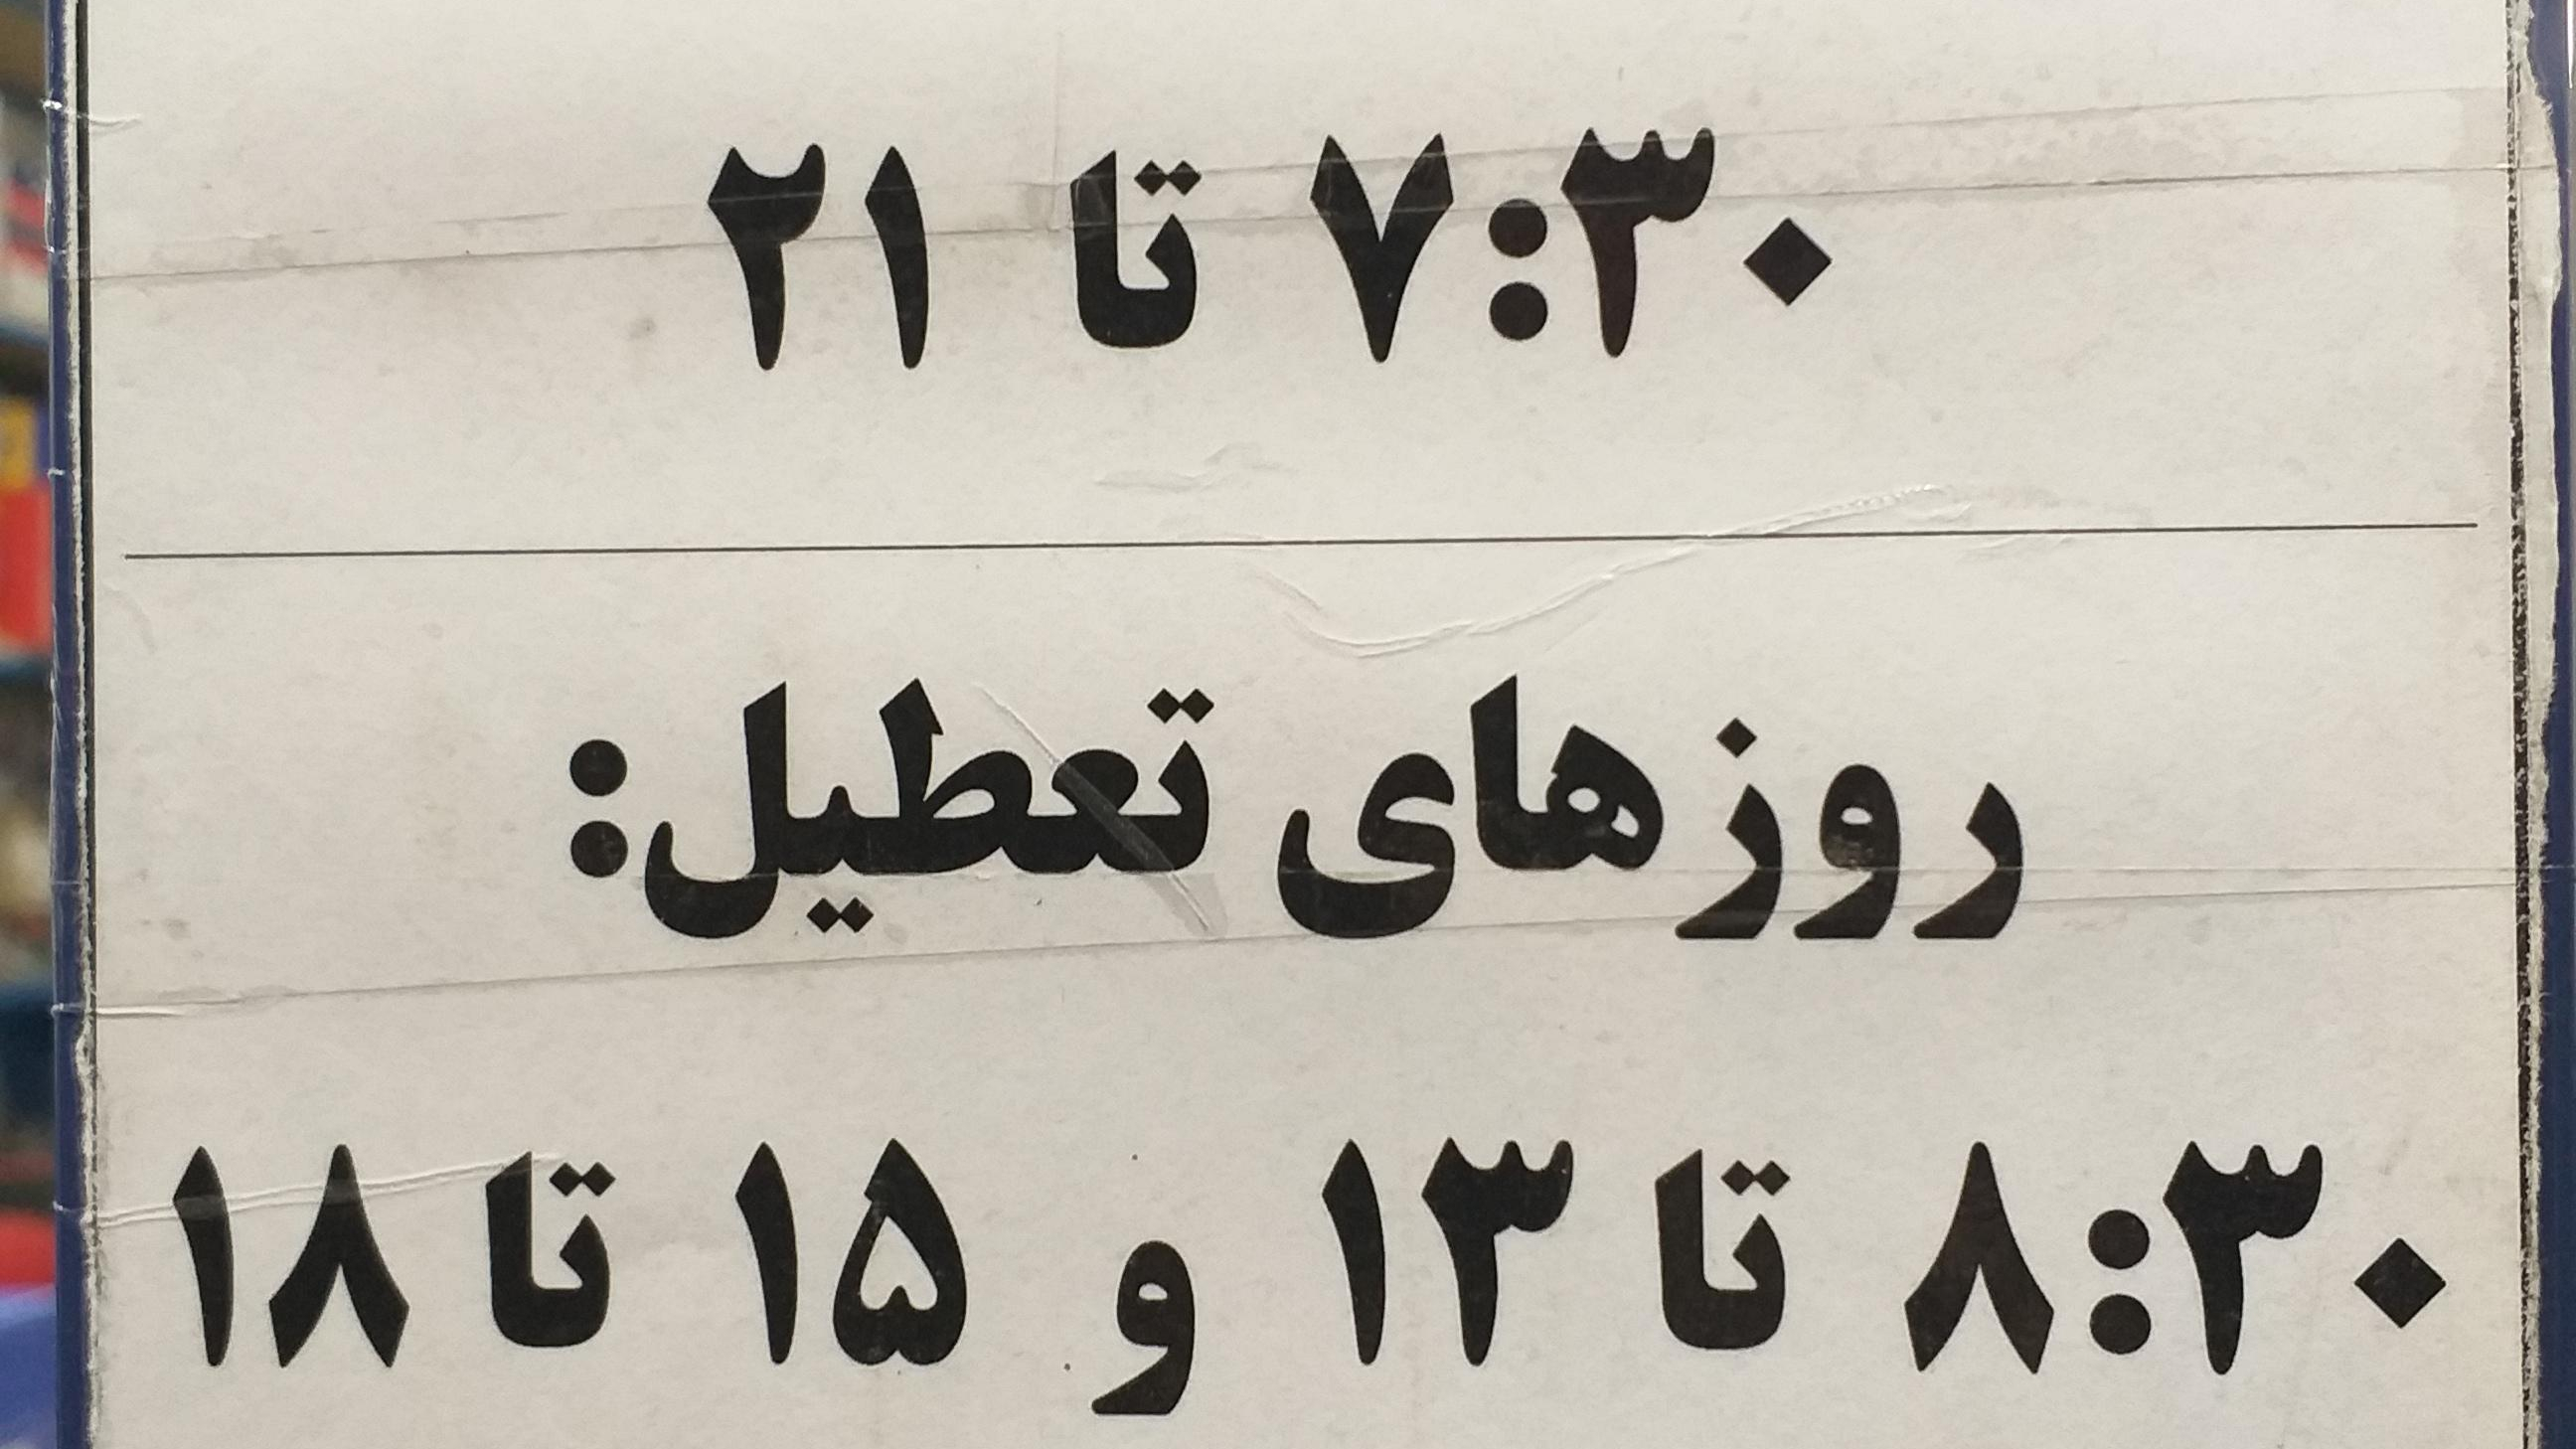 ۷:۳۰ تا ۲۱
روزهای تعطیل:
۸:۳۰ تا ۱۳ و ۱۵ تا ۱۸